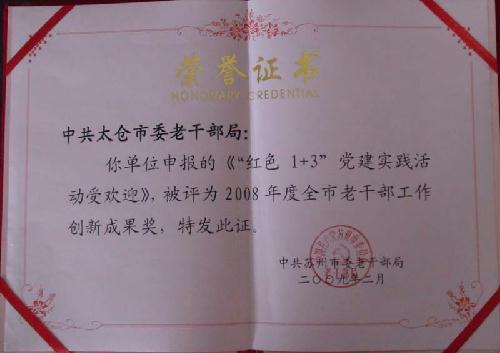 荣誉证书
HONORARY CREDENTIAL
中共太仓市委老干部局：
你单位申报的《“红色 1+3”党建实践活
动受欢迎》，被评为2008年度全市老干部工作
创新成果奖，特发此证。
中共苏州市委老干部局
二〇〇九年二月